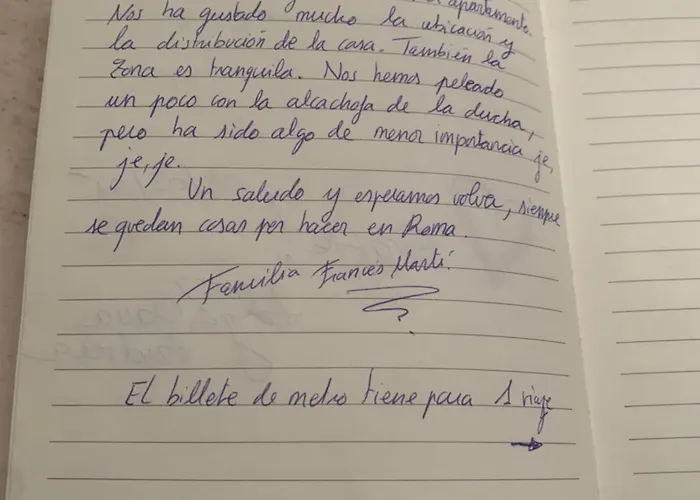 apartamento.
Nos ha gustado mucho la ubicación y
la distribución de la casa. También la
zona es tranquila. Nos hemos peleado
un poco con la alcachofa de la ducha,
pero ha sido algo de menor importancia je,
je, je.
Un saludo y esperamos volva, siempre
se quedan cosas por hacer en Roma.
Familia Francés Martí.
El billete de metro tiene para 1 viaje
→